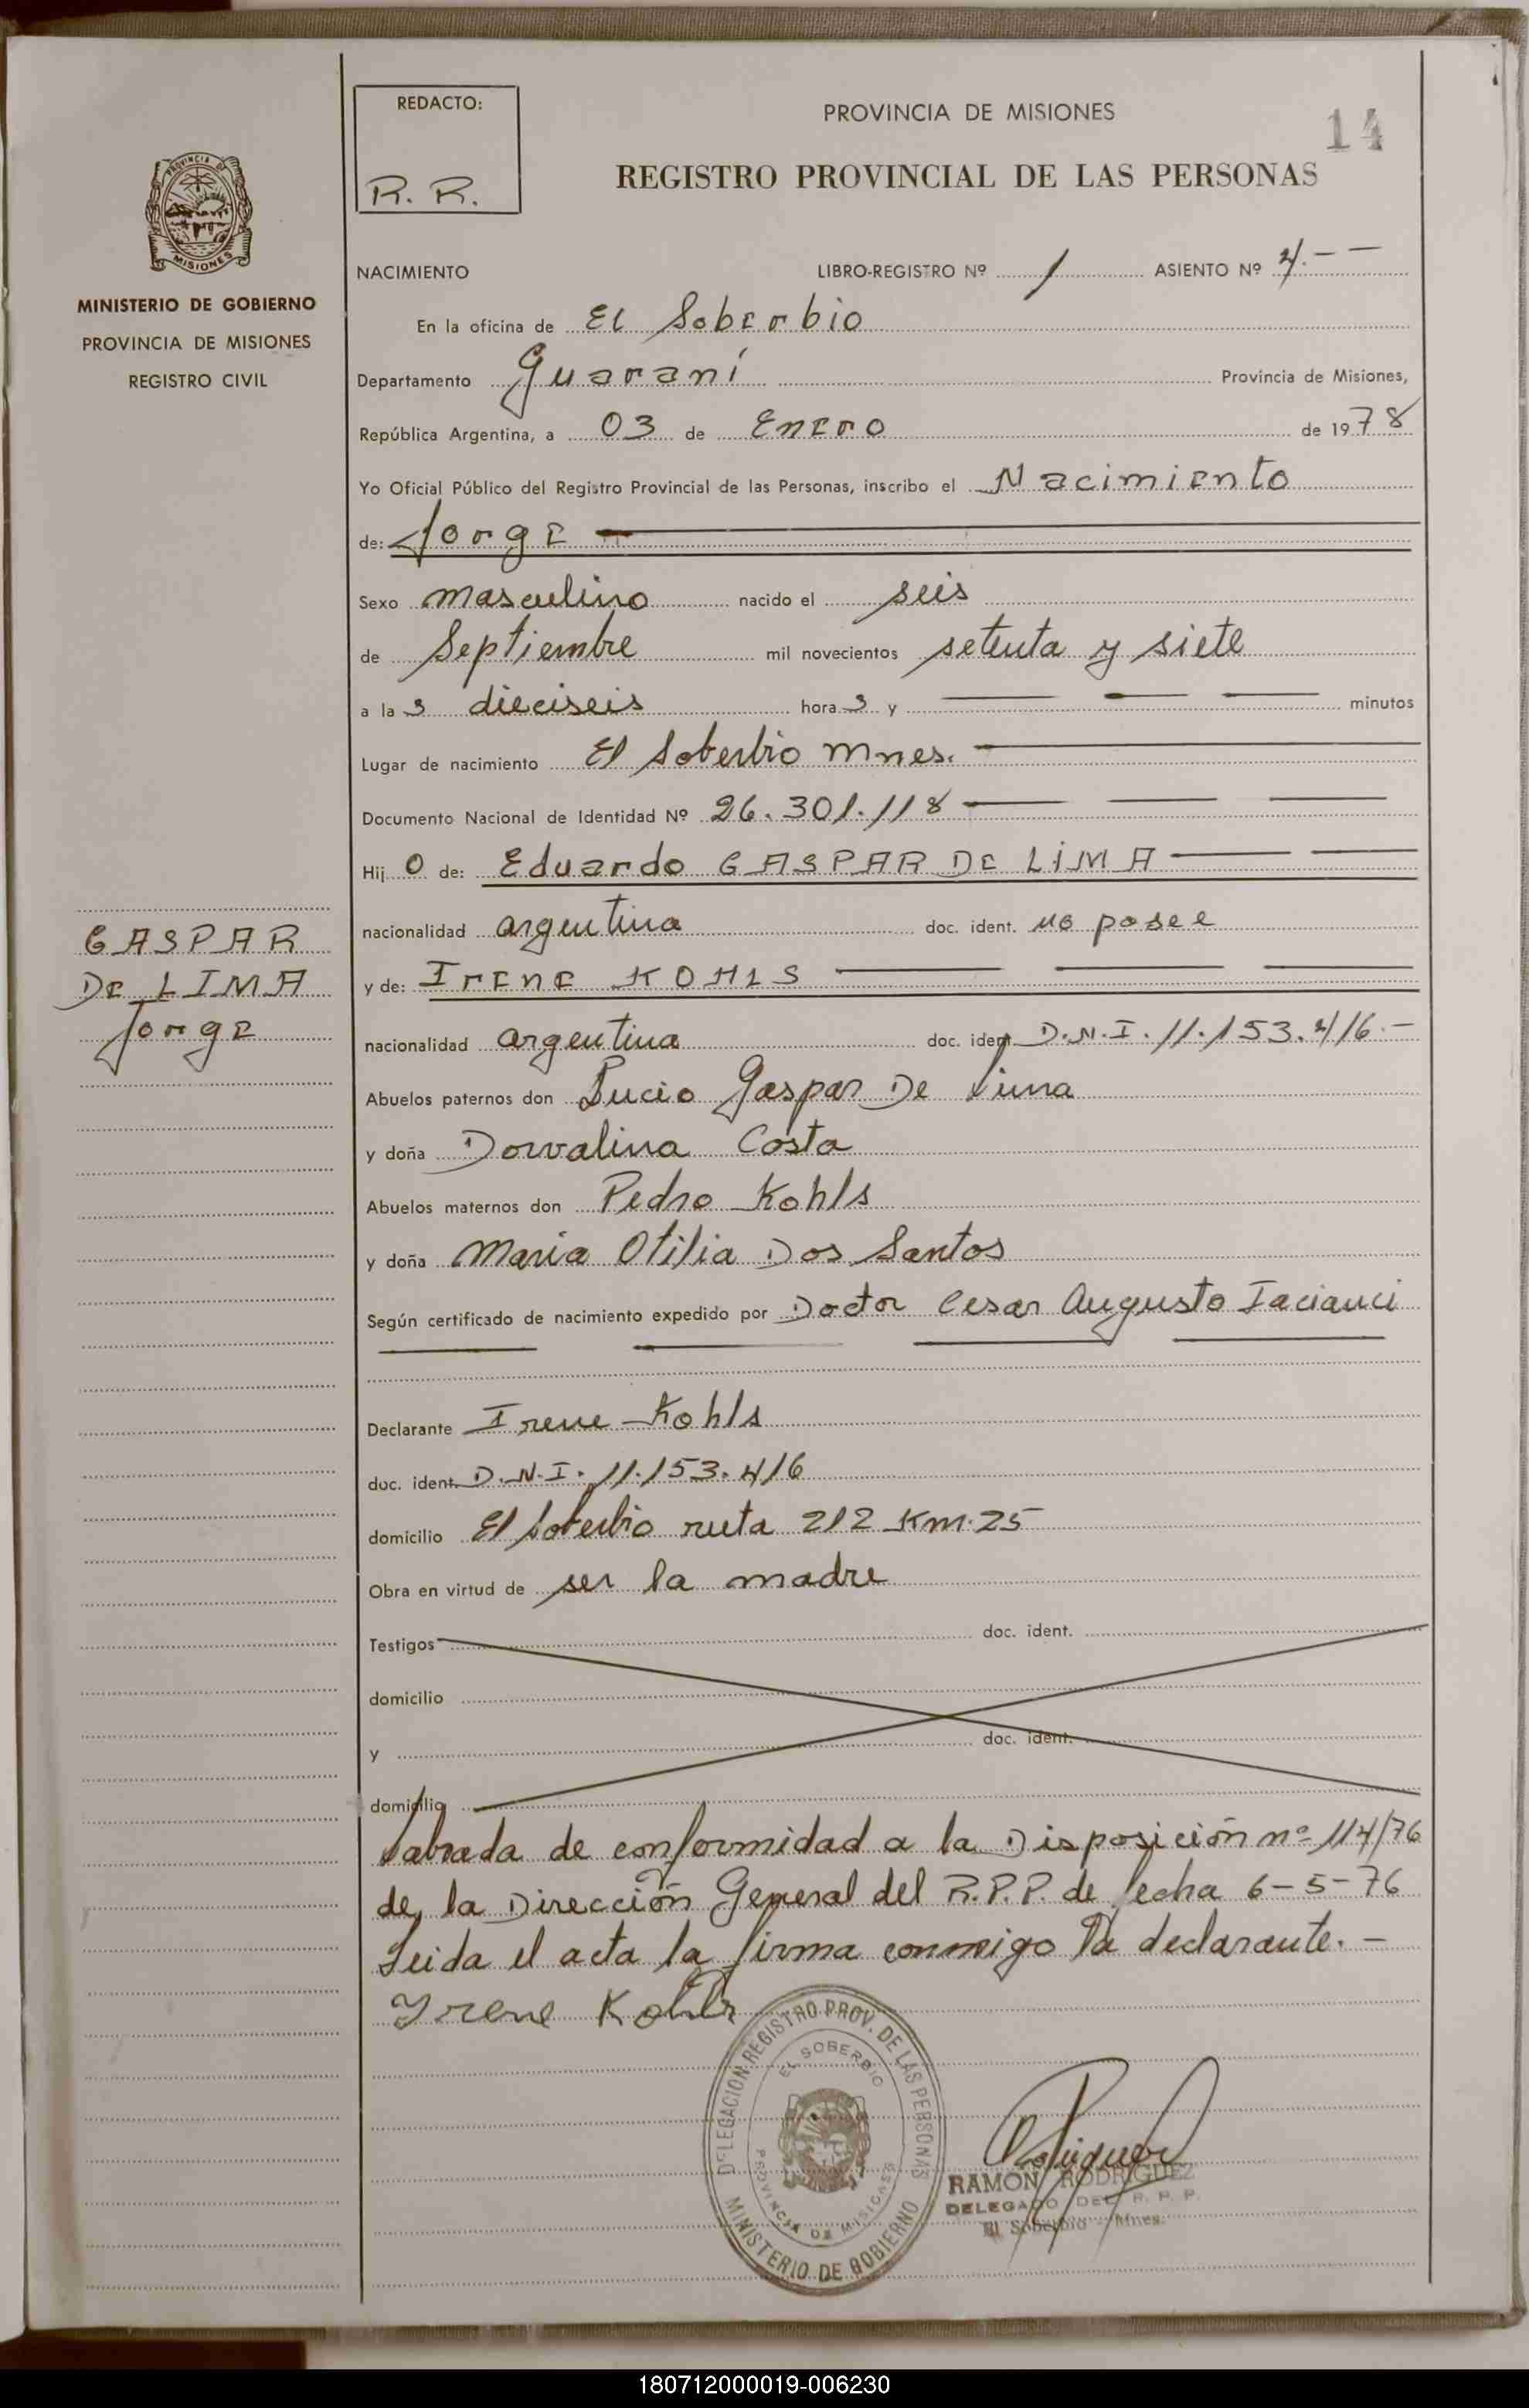 REDACTO:
R. R.
PROVINCIA DE MISIONES
14
REGISTRO PROVINCIAL DE LAS PERSONAS
PROVINCIA DE
MISIONES
MINISTERIO DE GOBIERNO
PROVINCIA DE MISIONES
REGISTRO CIVIL
NACIMIENTO LIBRO-REGISTRO Nº 1 ASIENTO Nº 4.--
En la oficina de El Soberbio
Departamento Guaraní Provincia de Misiones,
República Argentina, a 03 de Enero de 1978
Yo Oficial Público del Registro Provincial de las Personas, inscribo el Nacimiento
de: Jorge
Sexo masculino nacido el seis
de Septiembre mil novecientos setenta y siete
a la s dieciseis hora s y minutos
Lugar de nacimiento El Soberbio Mnes.
Documento Nacional de Identidad Nº 26.301.118
Hij o de: Eduardo GASPAR DE LIMA
nacionalidad argentina doc. ident. no posee
GASPAR
DE LIMA
Jorge
y de: Irene KOHLS
nacionalidad argentina doc. ident. D.N.I. 11.153.416.-
Abuelos paternos don Lucio Gaspar De Lima
y doña Dorvalina Costa
Abuelos maternos don Pedro Kohls
y doña Maria Otilia Dos Santos
Según certificado de nacimiento expedido por Doctor Cesar Augusto Iacianci
Declarante Irene Kohls
doc. ident. D.N.I. 11.153.416
domicilio El Soberbio ruta 212 Km. 25
Obra en virtud de ser la madre
Testigos doc. ident.
domicilio
y doc. ident.
domicilio
Labrada de conformidad a la Disposición nº 114/76
de la Dirección General del R.P.P. de fecha 6-5-76
Leida el acta la firma conmigo la declarante.-
Yrene Kohls
DELEGACION REGISTRO PROV. DE LAS PERSONAS
EL SOBERBIO
PROVINCIA DE MISIONES
MINISTERIO DE GOBIERNO
RAMON RODRIGUEZ
DELEGADO DEL R. P. P.
El Soberbio - Mnes.
180712000019-006230